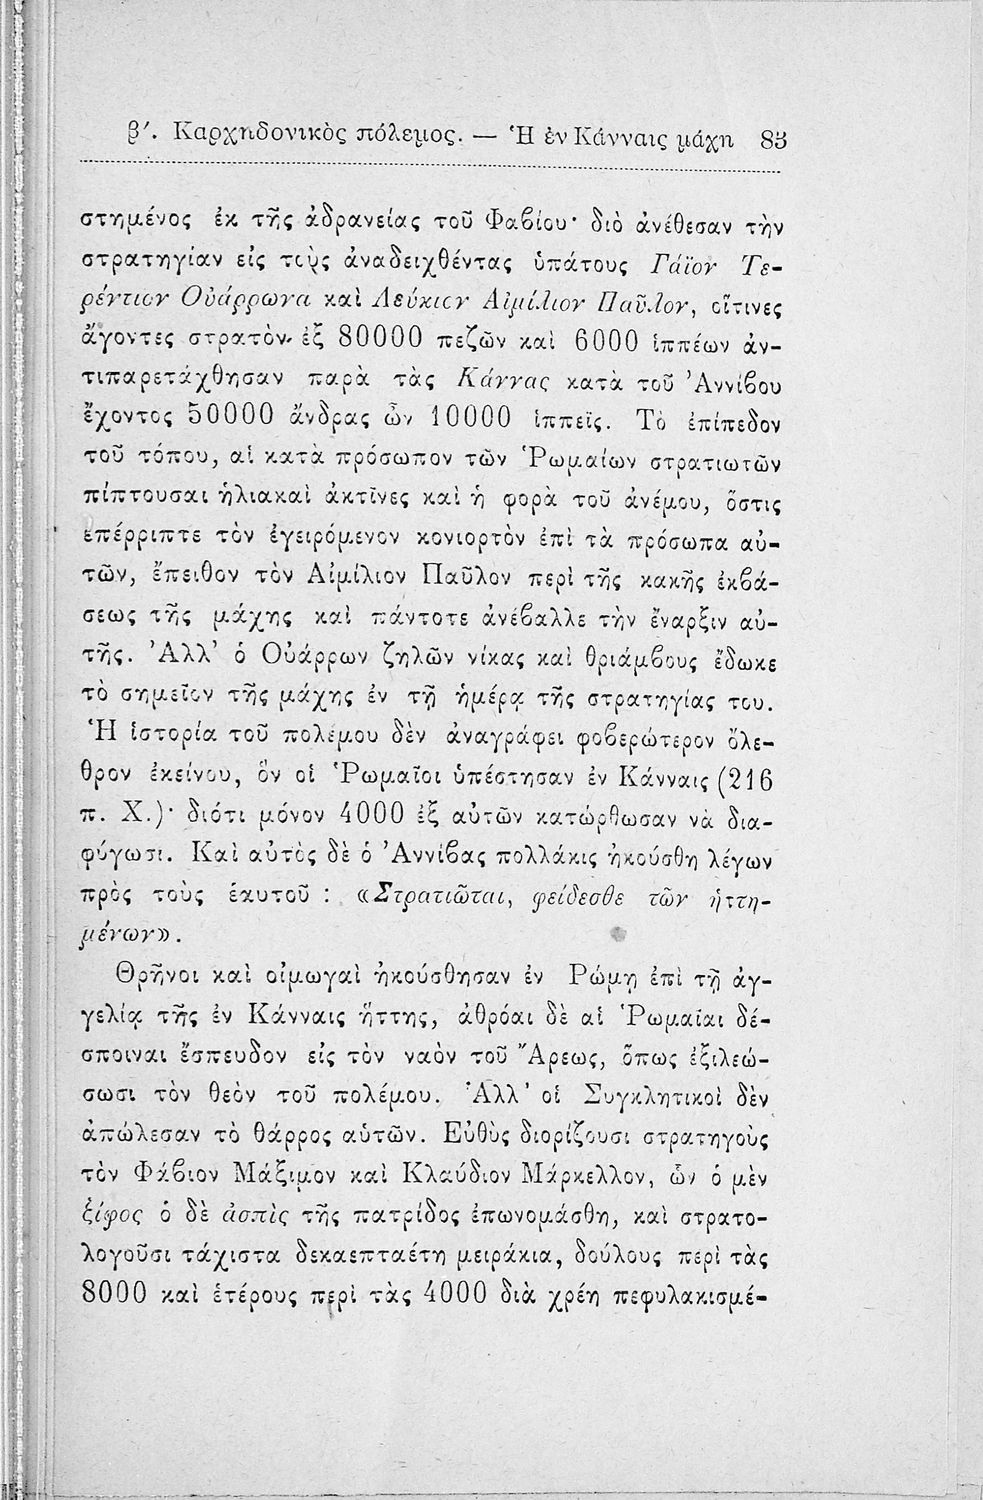 β'. Καρχηδονικὸς πόλεμος. — Ἡ ἐν Κάνναις μάχη 83
στημένος ἐκ τῆς ἀδρανείας τοῦ Φαβίου· διὸ ἀνέθεσαν τὴν
στρατηγίαν εἰς τοὺς ἀναδειχθέντας ὑπάτους Γάϊον Τε-
ρέντιον Οὐάρρωνα καὶ Λεύκιον Αἰμίλιον Παῦλον, οἵτινες
ἄγοντες στρατὸν ἐξ 80000 πεζῶν καὶ 6000 ἱππέων ἀν-
τιπαρετάχθησαν παρὰ τὰς Κάννας κατὰ τοῦ Ἀννίβου
ἔχοντος 50000 ἄνδρας ὧν 10000 ἱππεῖς. Τὸ ἐπίπεδον
τοῦ τόπου, αἱ κατὰ πρόσωπον τῶν Ῥωμαίων στρατιωτῶν
πίπτουσαι ἡλιακαὶ ἀκτῖνες καὶ ἡ φορὰ τοῦ ἀνέμου, ὅστις
ἐπέρριπτε τὸν ἐγειρόμενον κονιορτὸν ἐπὶ τὰ πρόσωπα αὐ-
τῶν, ἔπειθον τὸν Αἰμίλιον Παῦλον περὶ τῆς κακῆς ἐκβά-
σεως τῆς μάχης καὶ πάντοτε ἀνέβαλλε τὴν ἔναρξιν αὐ-
τῆς. Ἀλλ' ὁ Οὐάρρων ζηλῶν νίκας καὶ θριάμβους ἔδωκε
τὸ σημεῖον τῆς μάχης ἐν τῇ ἡμέρᾳ τῆς στρατηγίας του.
Ἡ ἱστορία τοῦ πολέμου δὲν ἀναγράφει φοβερώτερον ὄλε-
θρον ἐκείνου, ὃν οἱ Ῥωμαῖοι ὑπέστησαν ἐν Κάνναις (216
π. Χ.)· διότι μόνον 4000 ἐξ αὐτῶν κατώρθωσαν νὰ δια-
φύγωσι. Καὶ αὐτὸς δὲ ὁ Ἀννίβας πολλάκις ἠκούσθη λέγων
πρὸς τοὺς ἑαυτοῦ : «Στρατιῶται, φείδεσθε τῶν ἡττη-
μένων».
Θρῆνοι καὶ οἰμωγαὶ ἠκούσθησαν ἐν Ῥώμῃ ἐπὶ τῇ ἀγ-
γελίᾳ τῆς ἐν Κάνναις ἥττης, ἀθρόαι δὲ αἱ Ῥωμαῖαι δέ-
σποιναι ἔσπευδον εἰς τὸν ναὸν τοῦ Ἄρεως, ὅπως ἐξιλεώ-
σωσι τὸν θεὸν τοῦ πολέμου. Ἀλλ' οἱ Συγκλητικοὶ δὲν
ἀπώλεσαν τὸ θάρρος αὑτῶν. Εὐθὺς διορίζουσι στρατηγοὺς
τὸν Φάβιον Μάξιμον καὶ Κλαύδιον Μάρκελλον, ὧν ὁ μὲν
ξίφος ὁ δὲ ἀσπὶς τῆς πατρίδος ἐπωνομάσθη, καὶ στρατο-
λογοῦσι τάχιστα δεκαεπταέτη μειράκια, δούλους περὶ τὰς
8000 καὶ ἑτέρους περὶ τὰς 4000 διὰ χρέη πεφυλακισμέ-